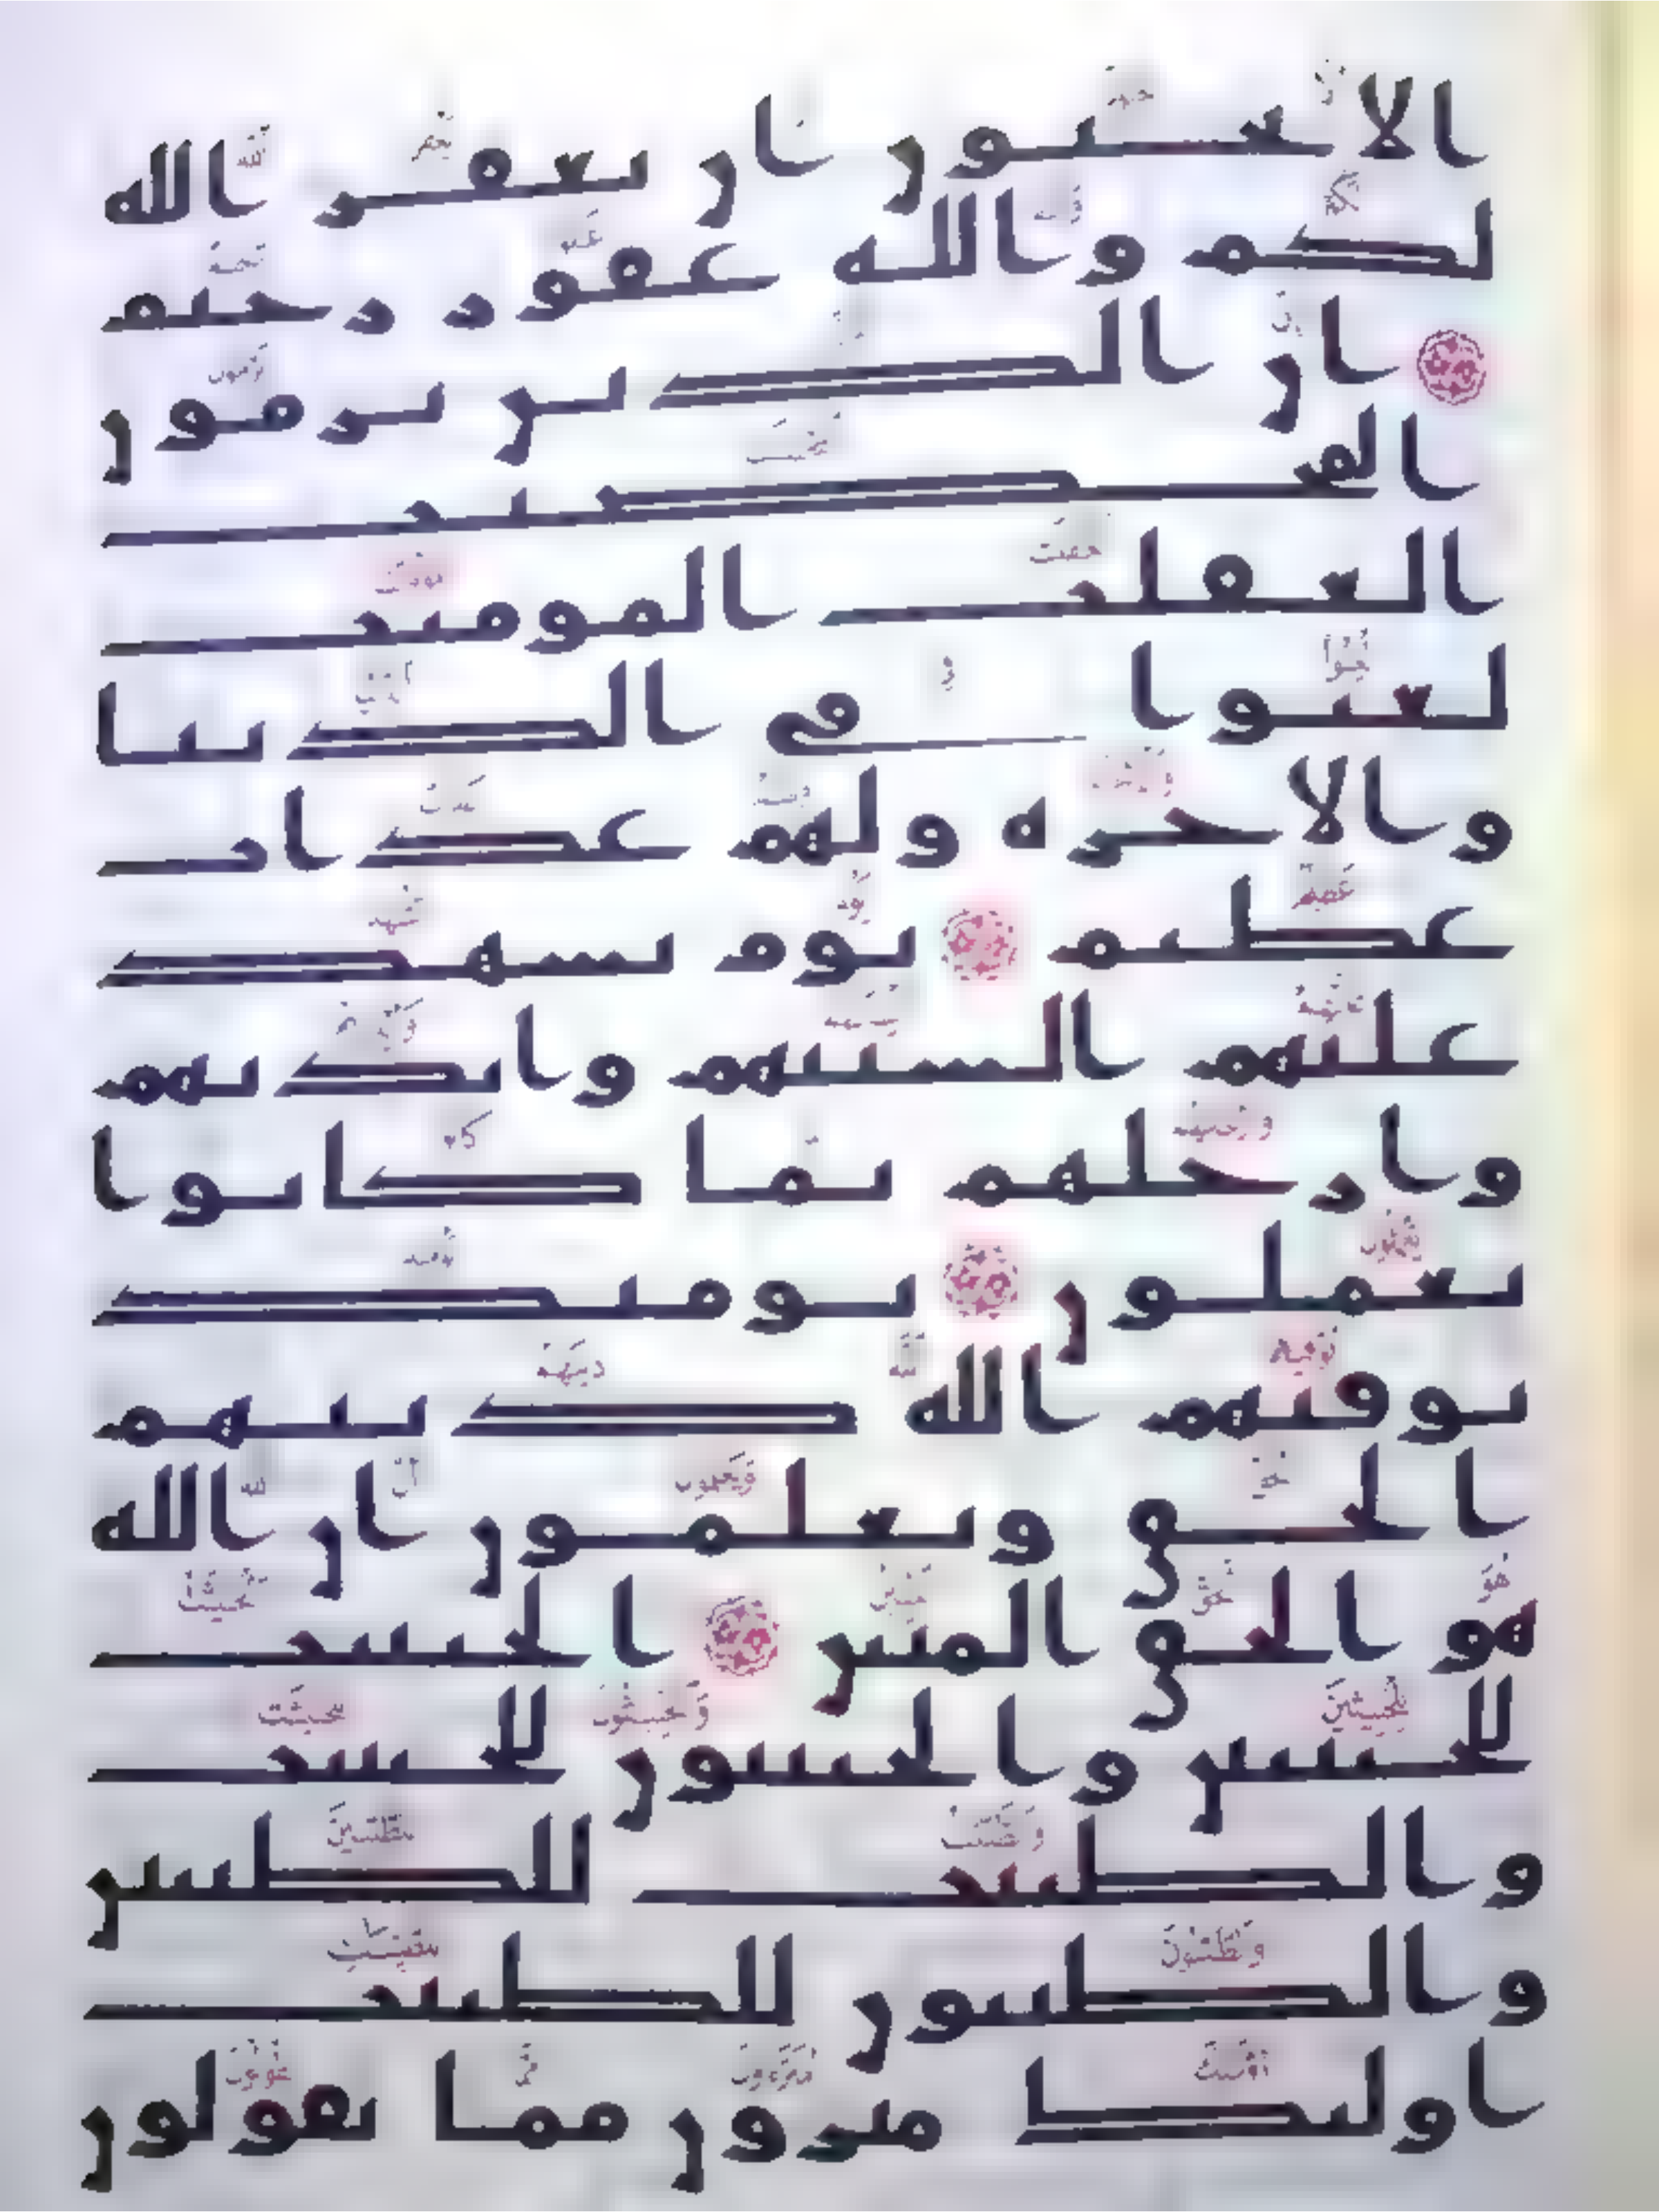 الا تحبون ان يغفر الله
لكم والله غفور رحيم
ان الذين يرمون
المحصنت
الغفلت المومنت
لعنوا في الدنيا
والاخرة ولهم عذاب
عظيم يوم تشهد
عليهم السنتهم وايديهم
وارجلهم بما كانوا
يعملون يومئذ
يوفيهم الله دينهم
الحق ويعلمون ان الله
هو الحق المبين الخبيثت
للخبيثين والخبيثون للخبيثت
والطيبت للطيبين
والطيبون للطيبت
اولئك مبرون مما يقولون